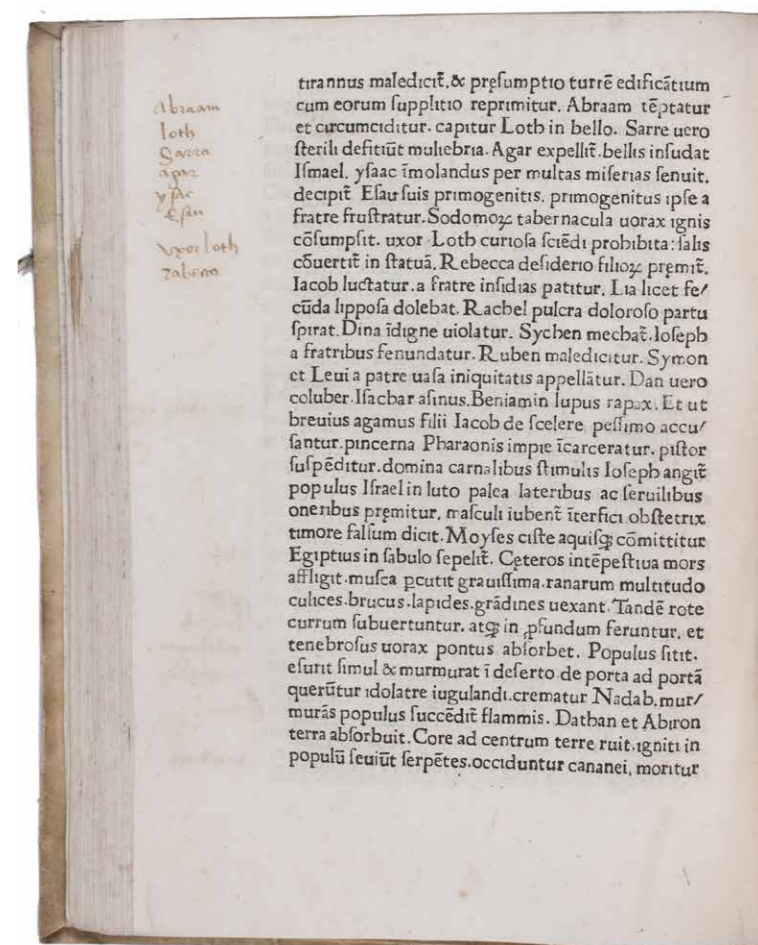 Abraam
loth
Sarra
agar
ysac
Esau
vxor loth
tirannus maledicit̄.& pręsumptio turrē edificātium
cum eorum ſupplitio reprimitur. Abraam tēptatur
et circumciditur. capitur Loth in bello. Sarre uero
ſterili defitiūt muliebria. Agar expellit̄.bellis inſudat
Iſmael. yſaac īmolandus per multas miſerias ſenuit.
decipit̄ Eſau ſuis primogenitis. primogenitus ipſe a
fratre fruſtratur. Sodomoꝝ tabernacula uorax ignis
cōſumpſit. uxor Loth curioſa ſciēdi prohibita: ſalis
cōuertit̄ in ſtatuā. Rebecca deſiderio filioꝝ pręmit̄.
Iacob luctatur. a fratre inſidias patitur. Lia licet fe/
cūda lippoſa dolebat. Rachel pulcra doloroſo partu
ſpirat. Dina īdigne uiolatur. Sychen mechat̄. Ioſeph
a fratribus fenundatur. Ruben maledicitur. Symon
et Leui a patre uaſa iniquitatis appellātur. Dan uero
coluber. Iſachar aſinus. Beniamin lupus rapax. Et ut
breuius agamus filii Iacob de ſcelere peſſimo accu/
ſantur. pincerna Pharaonis impie īcarceratur. piſtor
ſuſpēditur. domina carnalibus ſtimulis Ioſeph angit̄
populus Iſrael in luto palea lateribus ac ſeruilibus
oneribus pręmitur. maſculi iubent̄ īterfici obſtetrix
timore falſum dicit. Moyſes ciſte aquiſꝗ cōmittitur
Egiptius in ſabulo ſepelit̄. Cęteros intēpeſtiua mors
affligit. muſca ꝑcutit grauiſſima. ranarum multitudo
culices. brucus. lapides. grādines uexant. Tandē rote
currum ſubuertuntur. atꝗ in ꝓfundum feruntur. et
tenebroſus uorax pontus abſorbet. Populus ſitit.
eſurit ſimul & murmurat ī deſerto de porta ad portā
querūtur idolatre iugulandi. crematur Nadab. mur/
murās populus ſuccēdit̄ flammis. Dathan et Abiron
terra abſorbuit. Core ad centrum terre ruit. igniti in
populū ſeuiūt ſerpētes. occiduntur cananei. moritur